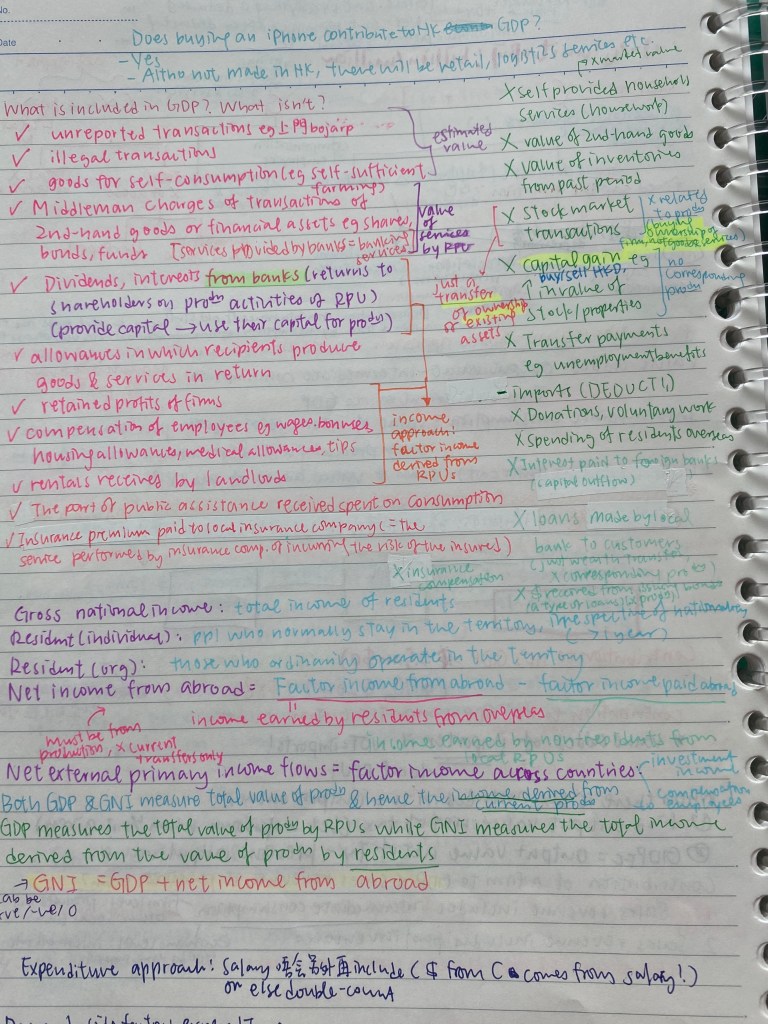 No.
Date
Does buying an iPhone contribute to HK GDP?
- Yes
- Altho not made in HK, there will be retail, logistics services etc.
What is included in GDP? What isn't?
✓ unreported transactions eg 上門
✓ illegal transactions
✓ goods for self-consumption (eg self-sufficient
farming)
estimated
value
✓ Middleman charges of transactions of
2nd-hand goods or financial assets eg shares,
bonds, funds [services provided by banks = banking
services]
value
of
services
by RPU
✓ Dividends, interests from banks (returns to
shareholders on prodn activities of RPU)
(provide capital → use their capital for prodn)
✓ allowances in which recipients produce
goods & services in return
✓ retained profits of firms
✓ compensation of employees eg wages, bonuses,
housing allowances, medical allowances, tips
✓ rentals received by landlords
income
approach:
factor income
derived from
RPUs
✓ The part of public assistance received spent on consumption
✓ Insurance premium paid to local insurance company (= the
service performed by insurance comp. of incurring the risk of the insured)
x market value
X self provided household
services (housework)
X value of 2nd-hand goods
X value of inventories
from past period
X stock market
transactions
X related
to prodn
buying
ownership of
firm, not goods & services)
just a
transfer
of ownership
of existing
assets
X capital gain eg
buy/sell HKD,
↑ in value of
stock/properties
no
corresponding
prodn
X Transfer payments
eg unemployment benefits
- imports (DEDUCT!!)
X Donations, voluntary work
X spending of residents overseas
X Interest paid to foreign banks
(capital outflow)
X loans made by local
bank to customers
(just wealth transfer,
X corresponding prodn)
X insurance
compensation
X $ received from
Gross national income: total income of residents
Resident (individual): ppl who normally stay in the territory, irrespective of nationality
( >1 year)
Resident (org): those who ordinarily operate in the territory
Net income from abroad = Factor income from abroad - factor income paid abroad
income earned by residents from overseas
must be from
production, x current
transfers only
incomes earned by non-residents from
local RPUs
Net external primary income flows = factor income across countries:
investment
income
compensation
to employees
Both GDP & GNI measure total value of prodn & hence the income derived from
current prodn
GDP measures the total value of prodn by RPUs while GNI measures the total income
derived from the value of prodn by residents
→ GNI = GDP + net income from abroad
can be
+ve/-ve/0
Expenditure approach: salary 唔會另外再include ($ from C comes from salary!)
or else double-count